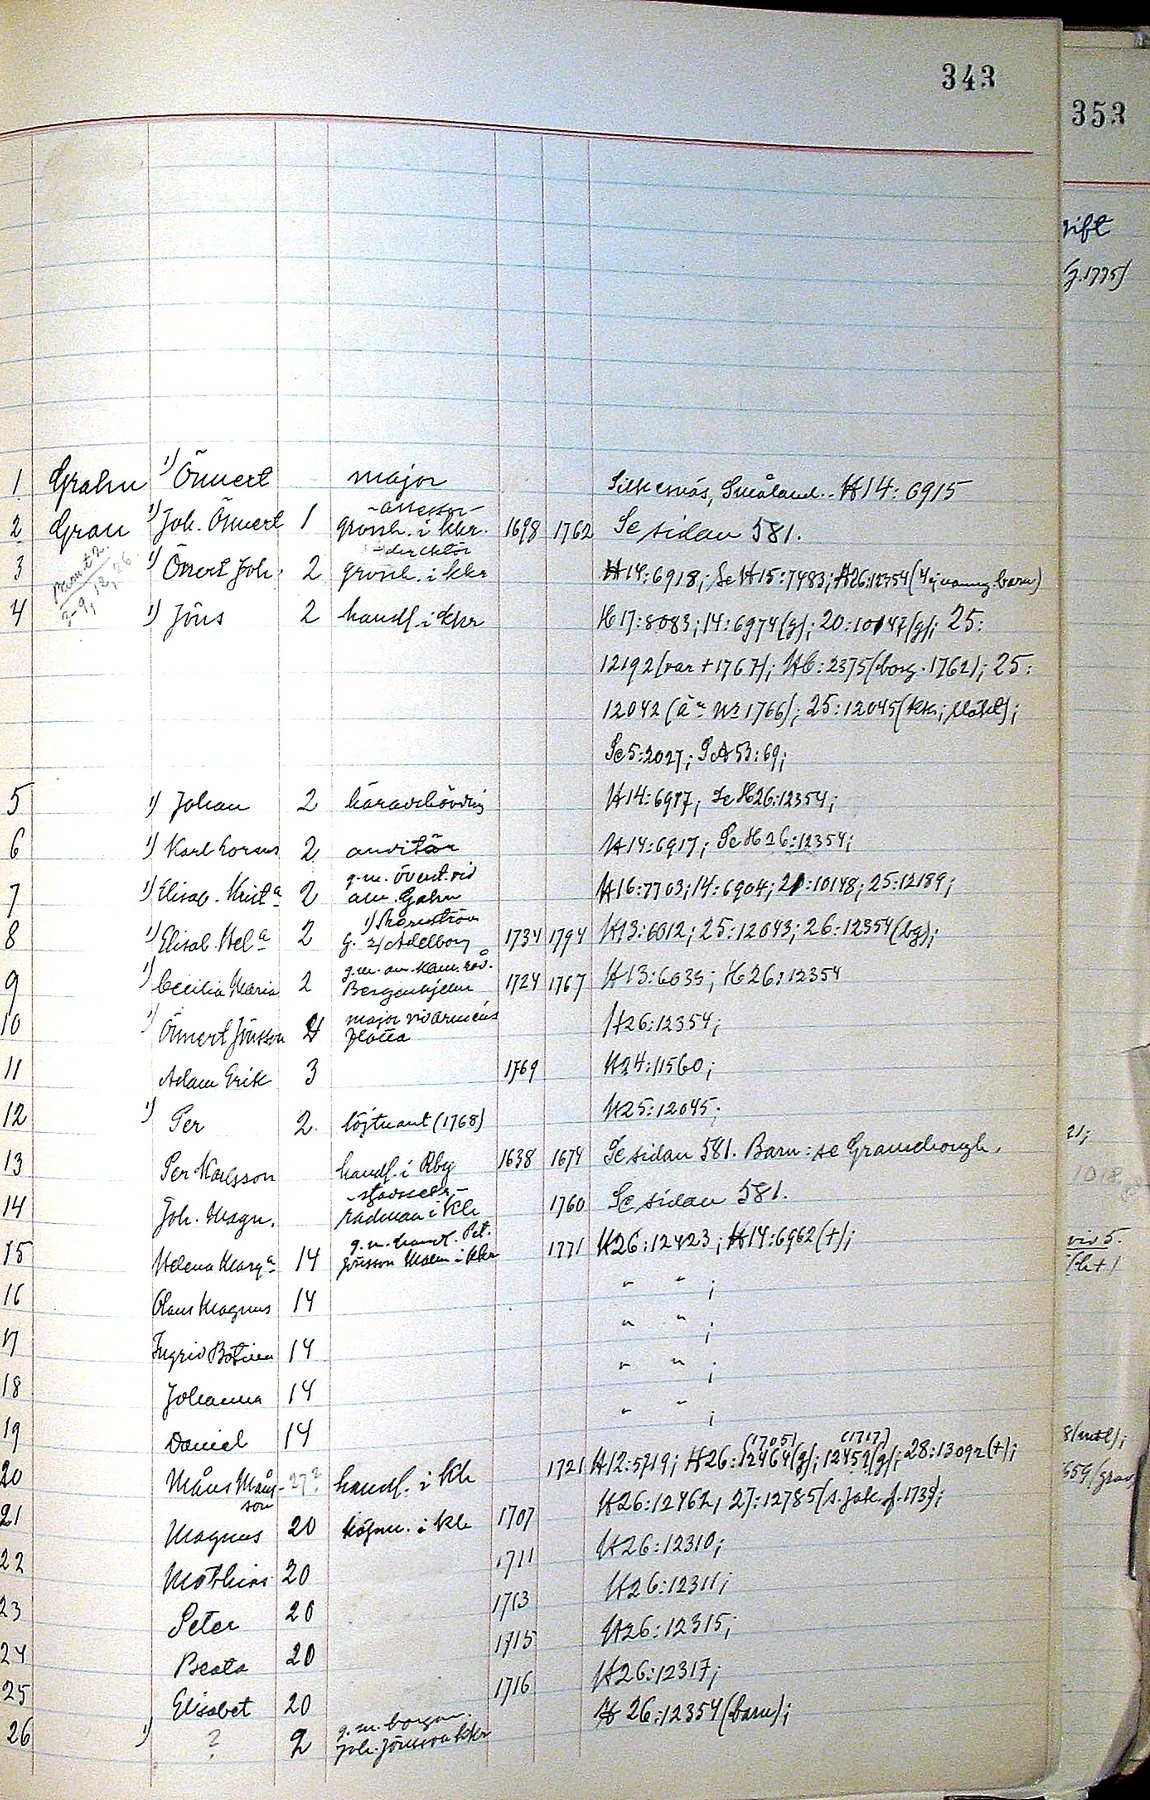 343
353
rift
(g. 1775)
1 Grahn 1) Önnert major Silkesnäs, Småland. H14: 6915
2 Grau 1) Joh. Önnert 1 -assessor- grossh. i Kkr. 1698 1762 Se sidan 581.
3 1) Önnert Joh. 2 direktör grossh. i Kkr H14:6918; Se H15:7483; H26:12354 (4 barn)
4 1) Jöns 2 handl. i Kkr H17:8083; 14:6974(g); 20:10147(g); 25:
12192 (var † 1767); H6:2375 (borg. 1762); 25:
12042 (1766); 25:12045
Se5:2027; SA53:69;
5 1) Johan 2 häradshövding H14:6917; Se H26:12354;
6 1) Karl 2 auditör H14:6917; Se H26:12354;
7 1) Elisab. Krist:a 2 g.m. överst.vid am. Gahn H16:7703; 14:6904; 20:10148; 25:12189;
8 1) Elisab Hel:a 2 g. 2) Adelborg 1734 1794 H13:6012; 25:12043; 26:12354 (bg);
9 1) Cecilia Maria 2 g.m. 1724 1767 H13:6035; H26:12354
10 1) Önnert Jönsson major vid arméns flotta H26:12354;
11 Adam Erik 3 1769 H24:11560;
12 1) Per 2. löjtnant (1768) H25:12045;
13 Per Karlsson handl. i Rby 1638 1674 Se sidan 581. Barn: se
14 Joh. Magn. rådman i Kkr 1760 Se sidan 581.
15 Helena Marg:a 14 g.m. handl. Pet. Jönsson Malm i Kkr 1771 H26:12423; H14:6962 (†);
16 Claus Magnus 14 " " ;
17 Ingrid Botilla 14 " " ;
18 Johanna 14 " " ;
19 Daniel 14 " " ;
20 Måns Måns-son 27? handl. i Kkr 1721 H12:5719; H26: (1705) 12464(g); (1717) 12459(g); 28:13092(†);
H26:12462, 27:12785 (s. Jak. f. 1739);
21 Magnus 20 köpm. i Kkr 1707
22 Mathias 20 1711 H26:12310;
23 Peter 20 1713 H26:12311;
24 Beata 20 1715 H26:12315;
25 Elisabet 20 1716 H26:12317;
26 1) ? 2 g.m. borgm. Joh. Jönsson Kkr H26:12354 (barn);
Barn t 2.
3-9, 12, 26.
21;
1018
vid 5.